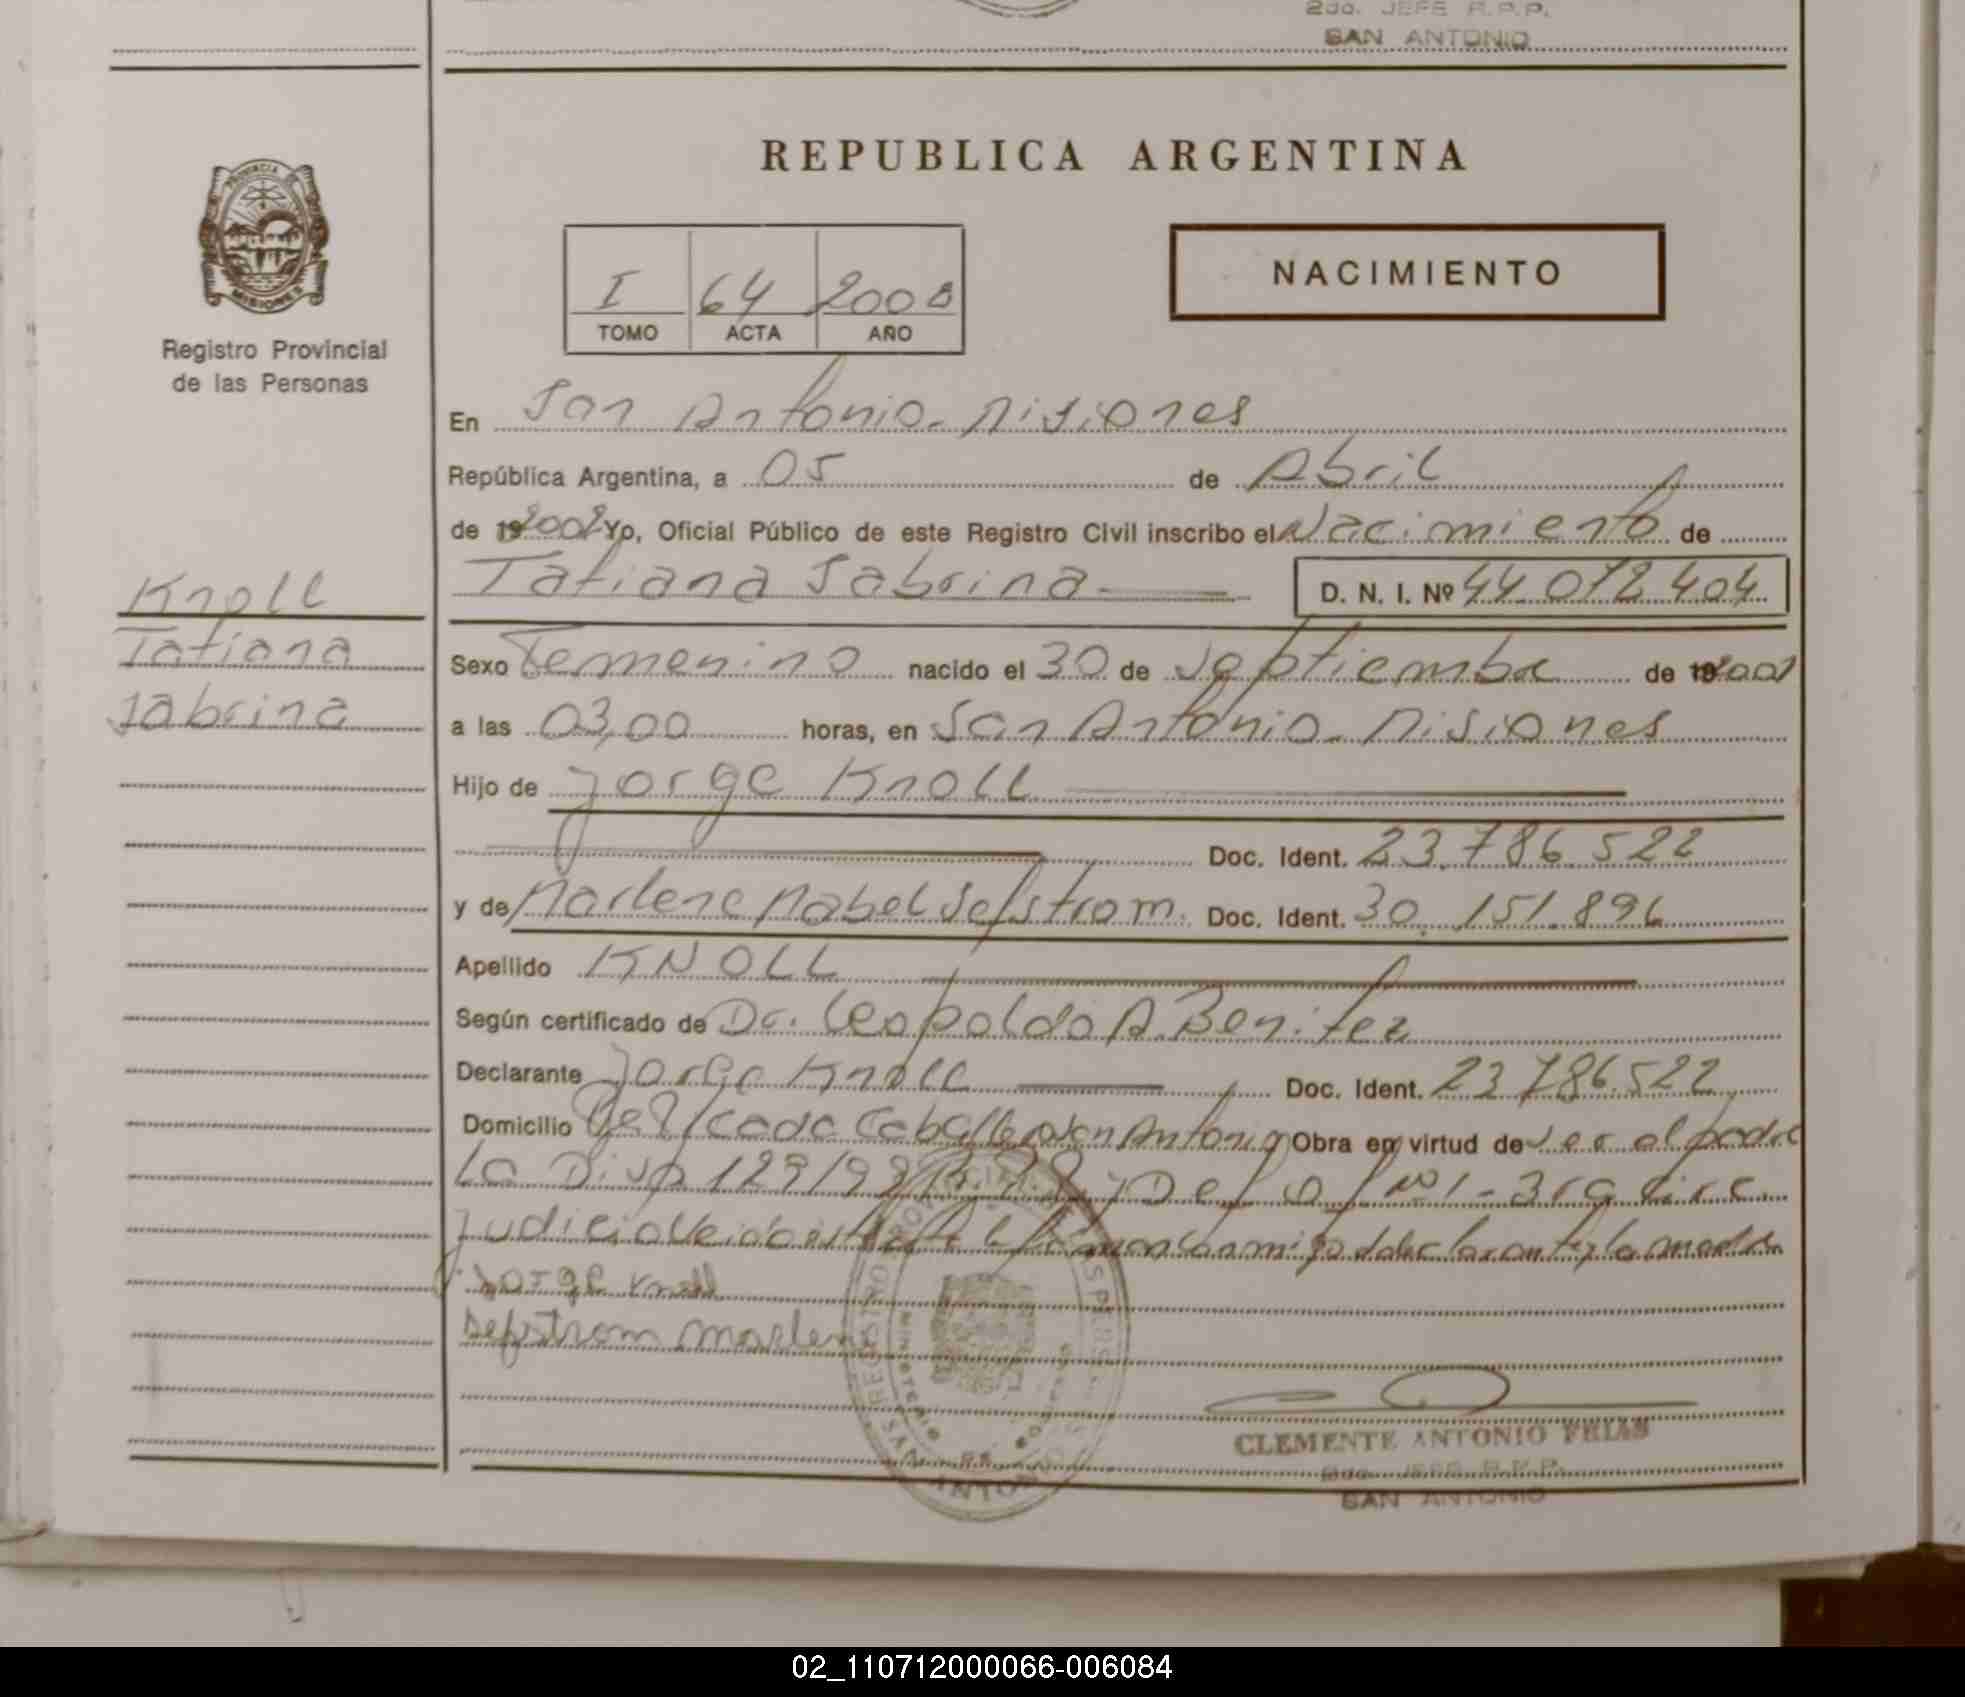 2do. JEFE R.P.P.
SAN ANTONIO
REPUBLICA ARGENTINA
PROVINCIA DE
MISIONES
Registro Provincial
de las Personas
I 64 2002
TOMO ACTA AÑO
NACIMIENTO
En San Antonio - Misiones
República Argentina, a 05 de Abril
de 2002 Yo, Oficial Público de este Registro Civil inscribo el Nacimiento de
Tatiana Sabrina D. N. I. Nº 44.072.404
Knoll
Tatiana
Sabrina
Sexo Femenino nacido el 30 de Septiembre de 2001
a las 03,00 horas, en San Antonio - Misiones
Hijo de Jorge Knoll
Doc. Ident. 23.786.522
y de Marlene Mabel Sefstrom. Doc. Ident. 30.151.896
Apellido KNOLL
Según certificado de Dr. Leopoldo A. Benitez
Declarante Jorge Knoll Doc. Ident. 23.786.522
Domicilio Caballero San Antonio Obra en virtud de ser el padre
La Disp 129/99 y Def Of Nº 1 - 3ra Circ.
Judicial conmigo declarante y la madre
Jorge Knoll
Sefstrom Marlene
REGISTRO PROVINCIAL DE LAS PERSONAS
MINISTERIO DE GOBIERNO
SAN ANTONIO
CLEMENTE ANTONIO FRIAS
2do. JEFE R.P.P.
SAN ANTONIO
02_110712000066-006084